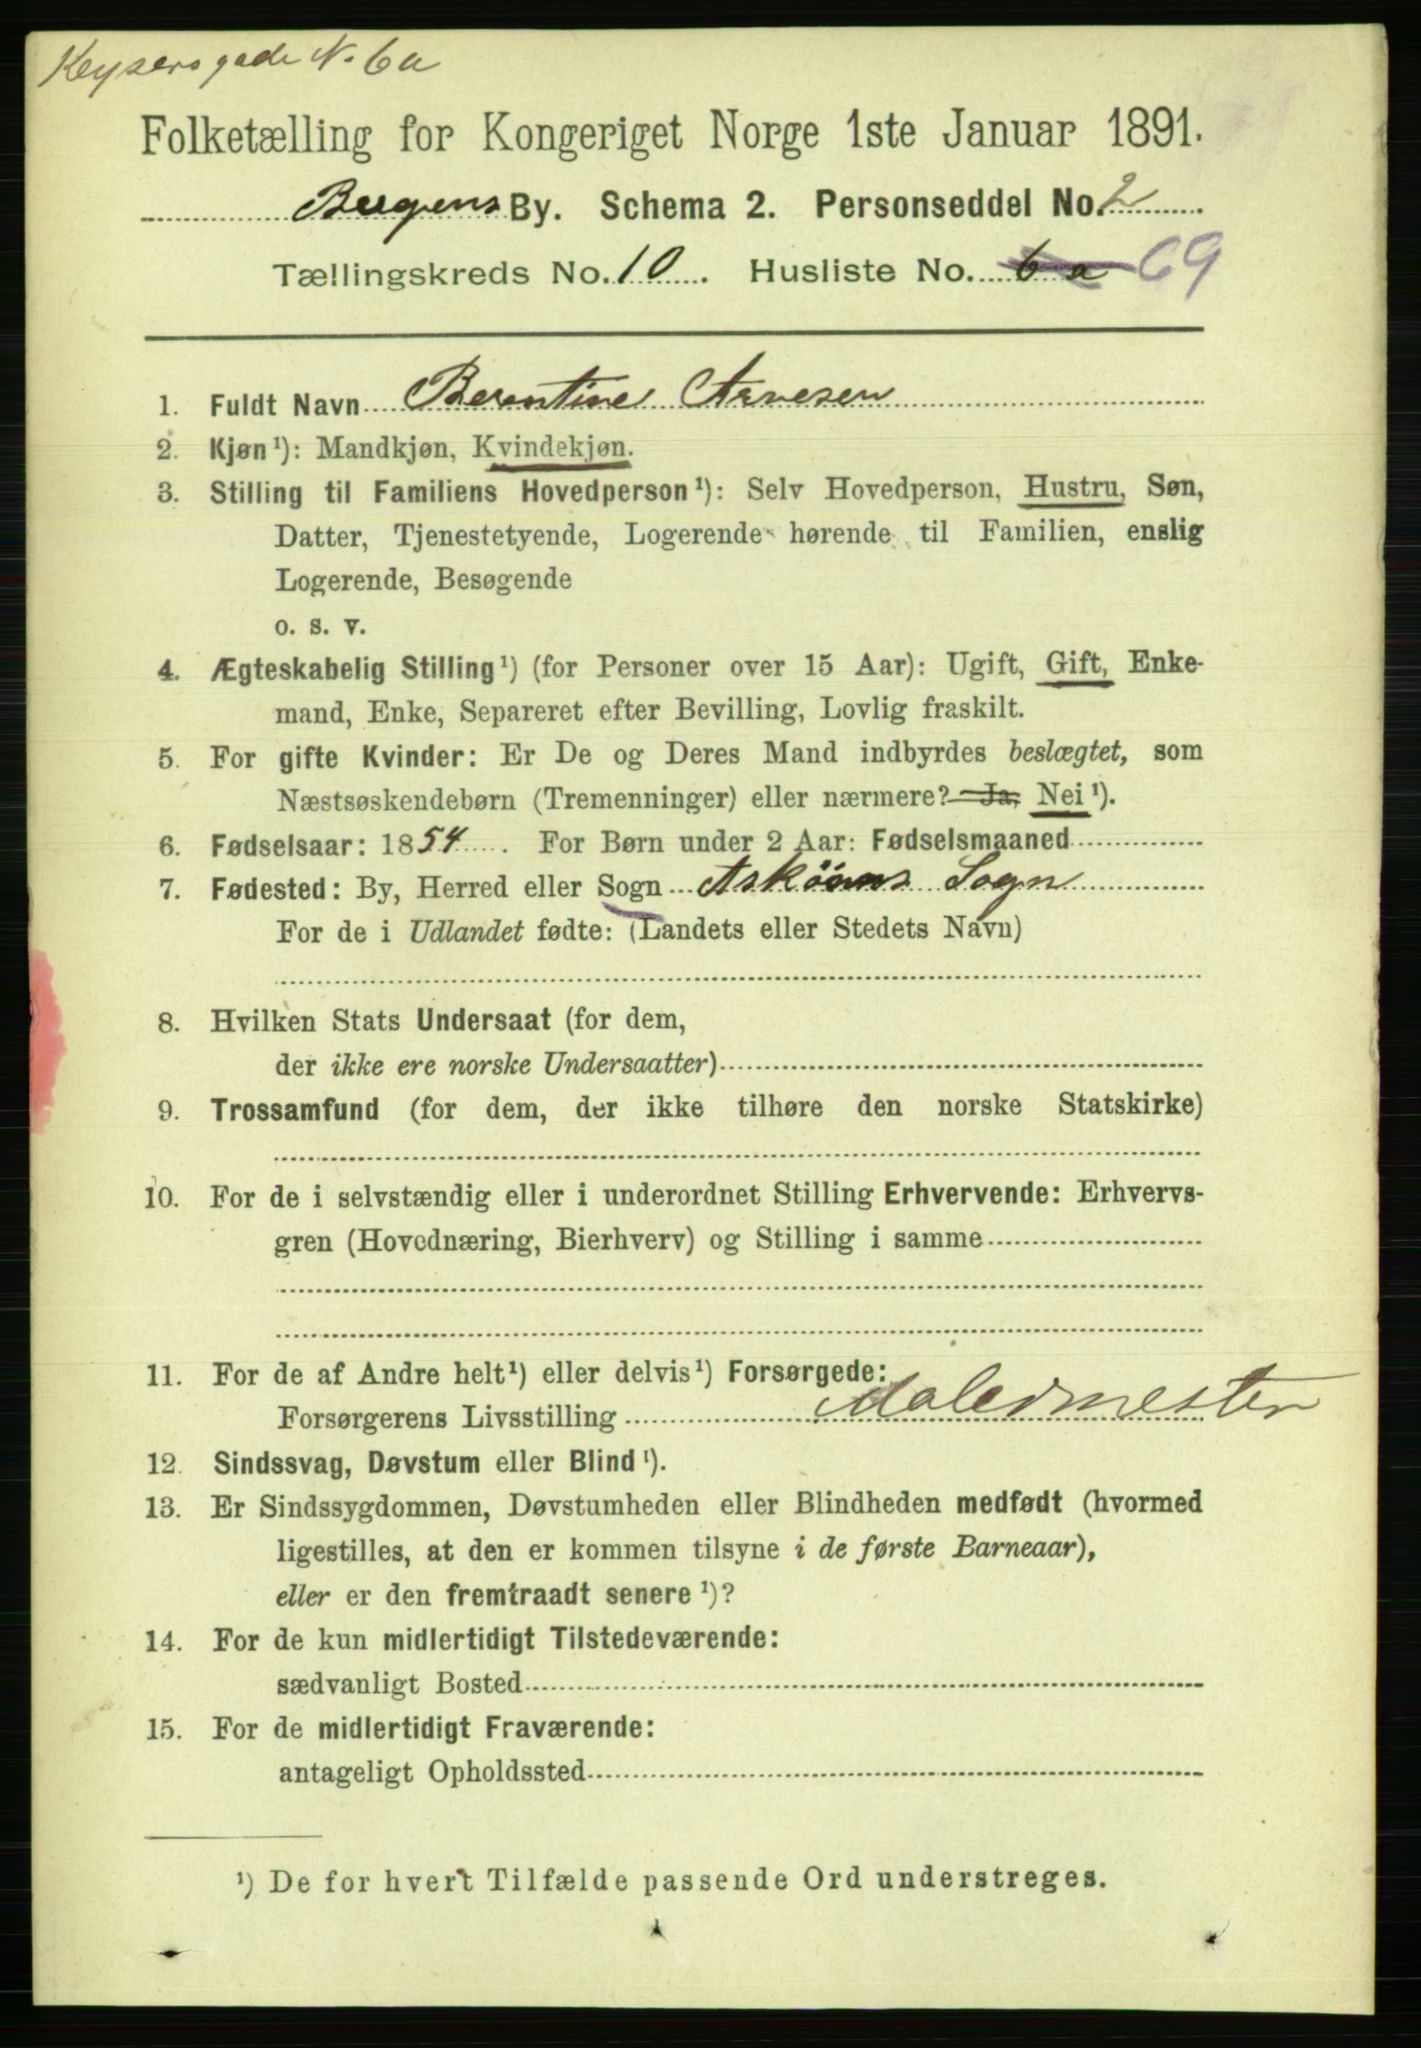 Keysersgade N. 6a
Folketælling for Kongeriget Norge 1ste Januar 1891.
Bergens By. Schema 2. Personseddel No. 2
Tællingskreds No. 10. Husliste No. 6 a 69
1. Fuldt Navn Berentine Arnesen
2. Kjøn¹): Mandkjøn, Kvindekjøn.
3. Stilling til Familiens Hovedperson¹): Selv Hovedperson, Hustru, Søn,
Datter, Tjenestetyende, Logerende hørende til Familien, enslig
Logerende, Besøgende
o. s. v.
4. Ægteskabelig Stilling¹) (for Personer over 15 Aar): Ugift, Gift, Enke-
mand, Enke, Separeret efter Bevilling, Lovlig fraskilt.
5. For gifte Kvinder: Er De og Deres Mand indbyrdes beslægtet, som
Næstsøskendebørn (Tremenninger) eller nærmere? Ja, Nei¹).
6. Fødselsaar: 1854. For Børn under 2 Aar: Fødselsmaaned
7. Fødested: By, Herred eller Sogn Askøens Sogn
For de i Udlandet fødte: (Landets eller Stedets Navn)
8. Hvilken Stats Undersaat (for dem,
der ikke ere norske Undersaatter)
9. Trossamfund (for dem, der ikke tilhøre den norske Statskirke)
10. For de i selvstændig eller i underordnet Stilling Erhvervende: Erhvervs-
gren (Hovednæring, Bierhverv) og Stilling i samme
11. For de af Andre helt¹) eller delvis¹) Forsørgede:
Forsørgerens Livsstilling Malermester
12. Sindssvag, Døvstum eller Blind¹).
13. Er Sindssygdommen, Døvstumheden eller Blindheden medfødt (hvormed
ligestilles, at den er kommen tilsyne i de første Barneaar),
eller er den fremtraadt senere¹)?
14. For de kun midlertidigt Tilstedeværende:
sædvanligt Bosted
15. For de midlertidigt Fraværende:
antageligt Opholdssted
¹) De for hvert Tilfælde passende Ord understreges.